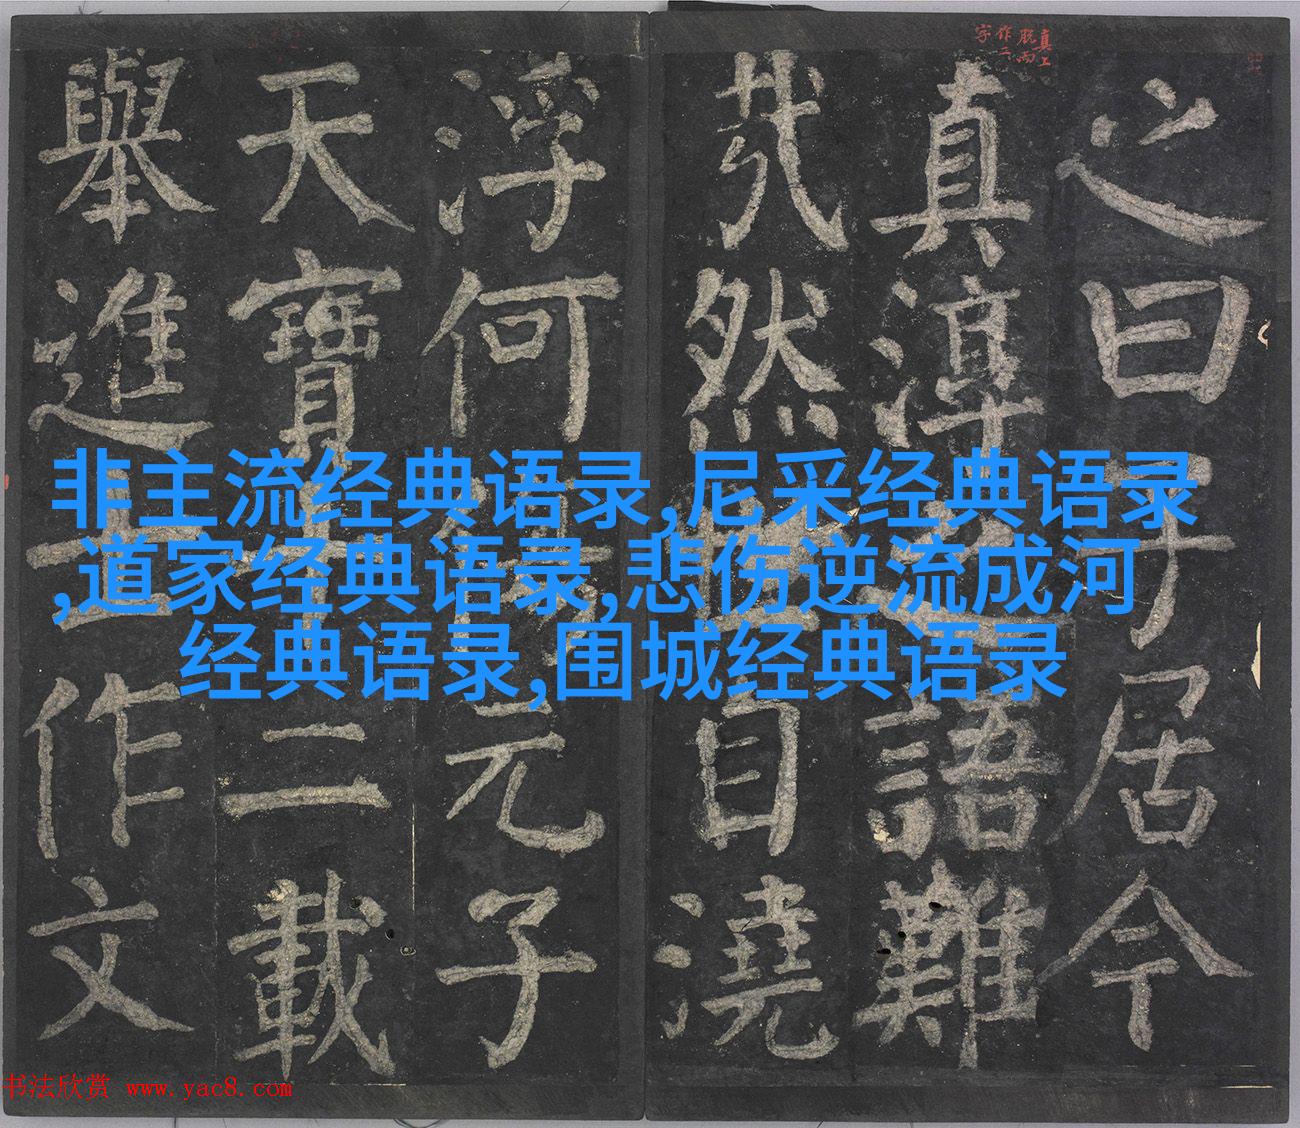 真上
脱而
作二
字
之曰子居今
真淳之語難
㦲然世自澆
浮何傷元子
天寶十二載
舉進士作文
非主流经典语录,尼采经典语录
,道家经典语录,悲伤逆流成河
经典语录,围城经典语录
书法欣赏 www.yac8.com